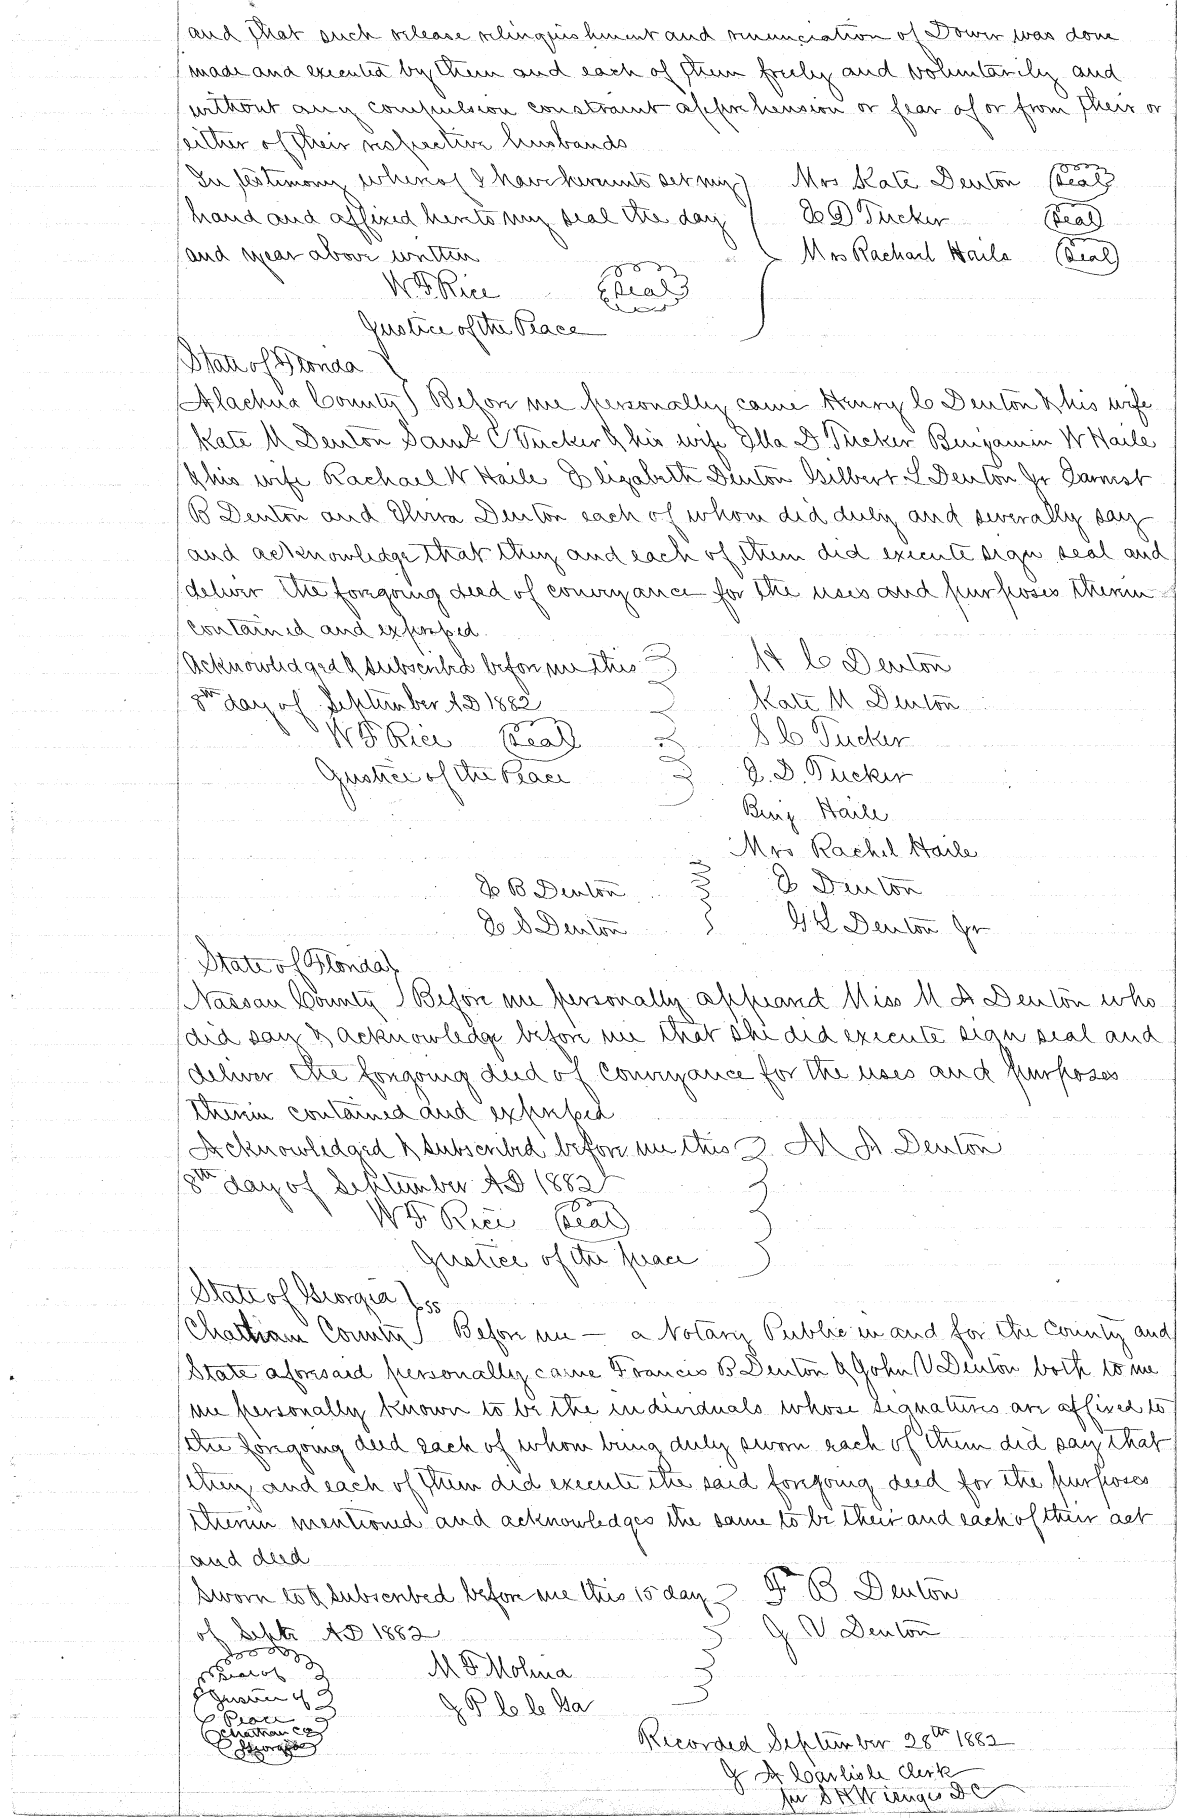 and that such release relinquishment and renunciation of Dower was done
made and executed by them and each of them freely and voluntarily and
without any compulsion constraint apprehension or fear of or from their or
either of their respective husbands
In testimony whereof I have hereunto set my Mrs Kate Denton (Seal)
hand and affixed hereto my seal the day E D Tucker (Seal)
and year above written Mrs Rachael Haile (Seal)
W. F. Rice (Seal)
Justice of the Peace
State of Florida
Alachua County Before me personally came Henry C Denton & his wife
Kate M Denton Saml C Tucker & his wife Ella D. Tucker Benjamin W Haile
& his wife Rachael W Haile Elizabeth Denton Gilbert L Denton Jr Earnest
B Denton and Elvira Denton each of whom did duly and severally say
and acknowledge that they and each of them did execute sign seal and
deliver the foregoing deed of conveyance for the uses and purposes therein
contained and expressed
Acknowledged & subscribed before me this H C Denton
8th day of September AD 1882 Kate M Denton
W F Rice (Seal) S C Tucker
Justice of the Peace E. D. Tucker
Benj Haile
Mrs Rachel Haile
E B Denton E Denton
E S Denton G L Denton Jr
State of Florida
Nassau County Before me personally appeared Miss M A Denton who
did say & acknowledge before me that she did execute sign seal and
deliver the forgoing deed of conveyance for the uses and purposes
therein contained and expressed
Acknowledged & subscribed before me this M A Denton
8th day of September AD 1882
W F Rice (Seal)
Justice of the peace
State of Georgia ss
Chatham County Before me — a Notary Public in and for the County and
State aforesaid personally came Francis B Denton & John V Denton both to me
me personally known to be the individuals whose signatures are affixed to
the foregoing deed each of whom being duly sworn each of them did say that
they and each of them did execute the said foregoing deed for the purposes
therein mentioned and acknowledges the same to be their and each of their act
and deed
Sworn to & subscribed before me this 15 day F B Denton
of Septr AD 1882 J V Denton
Seal of M F Molina
Justice of J P C C Ga
Peace
Chatham Co
Georgia
Recorded September 28th 1882
J A Carlisle Clerk
per S H Wienges D C